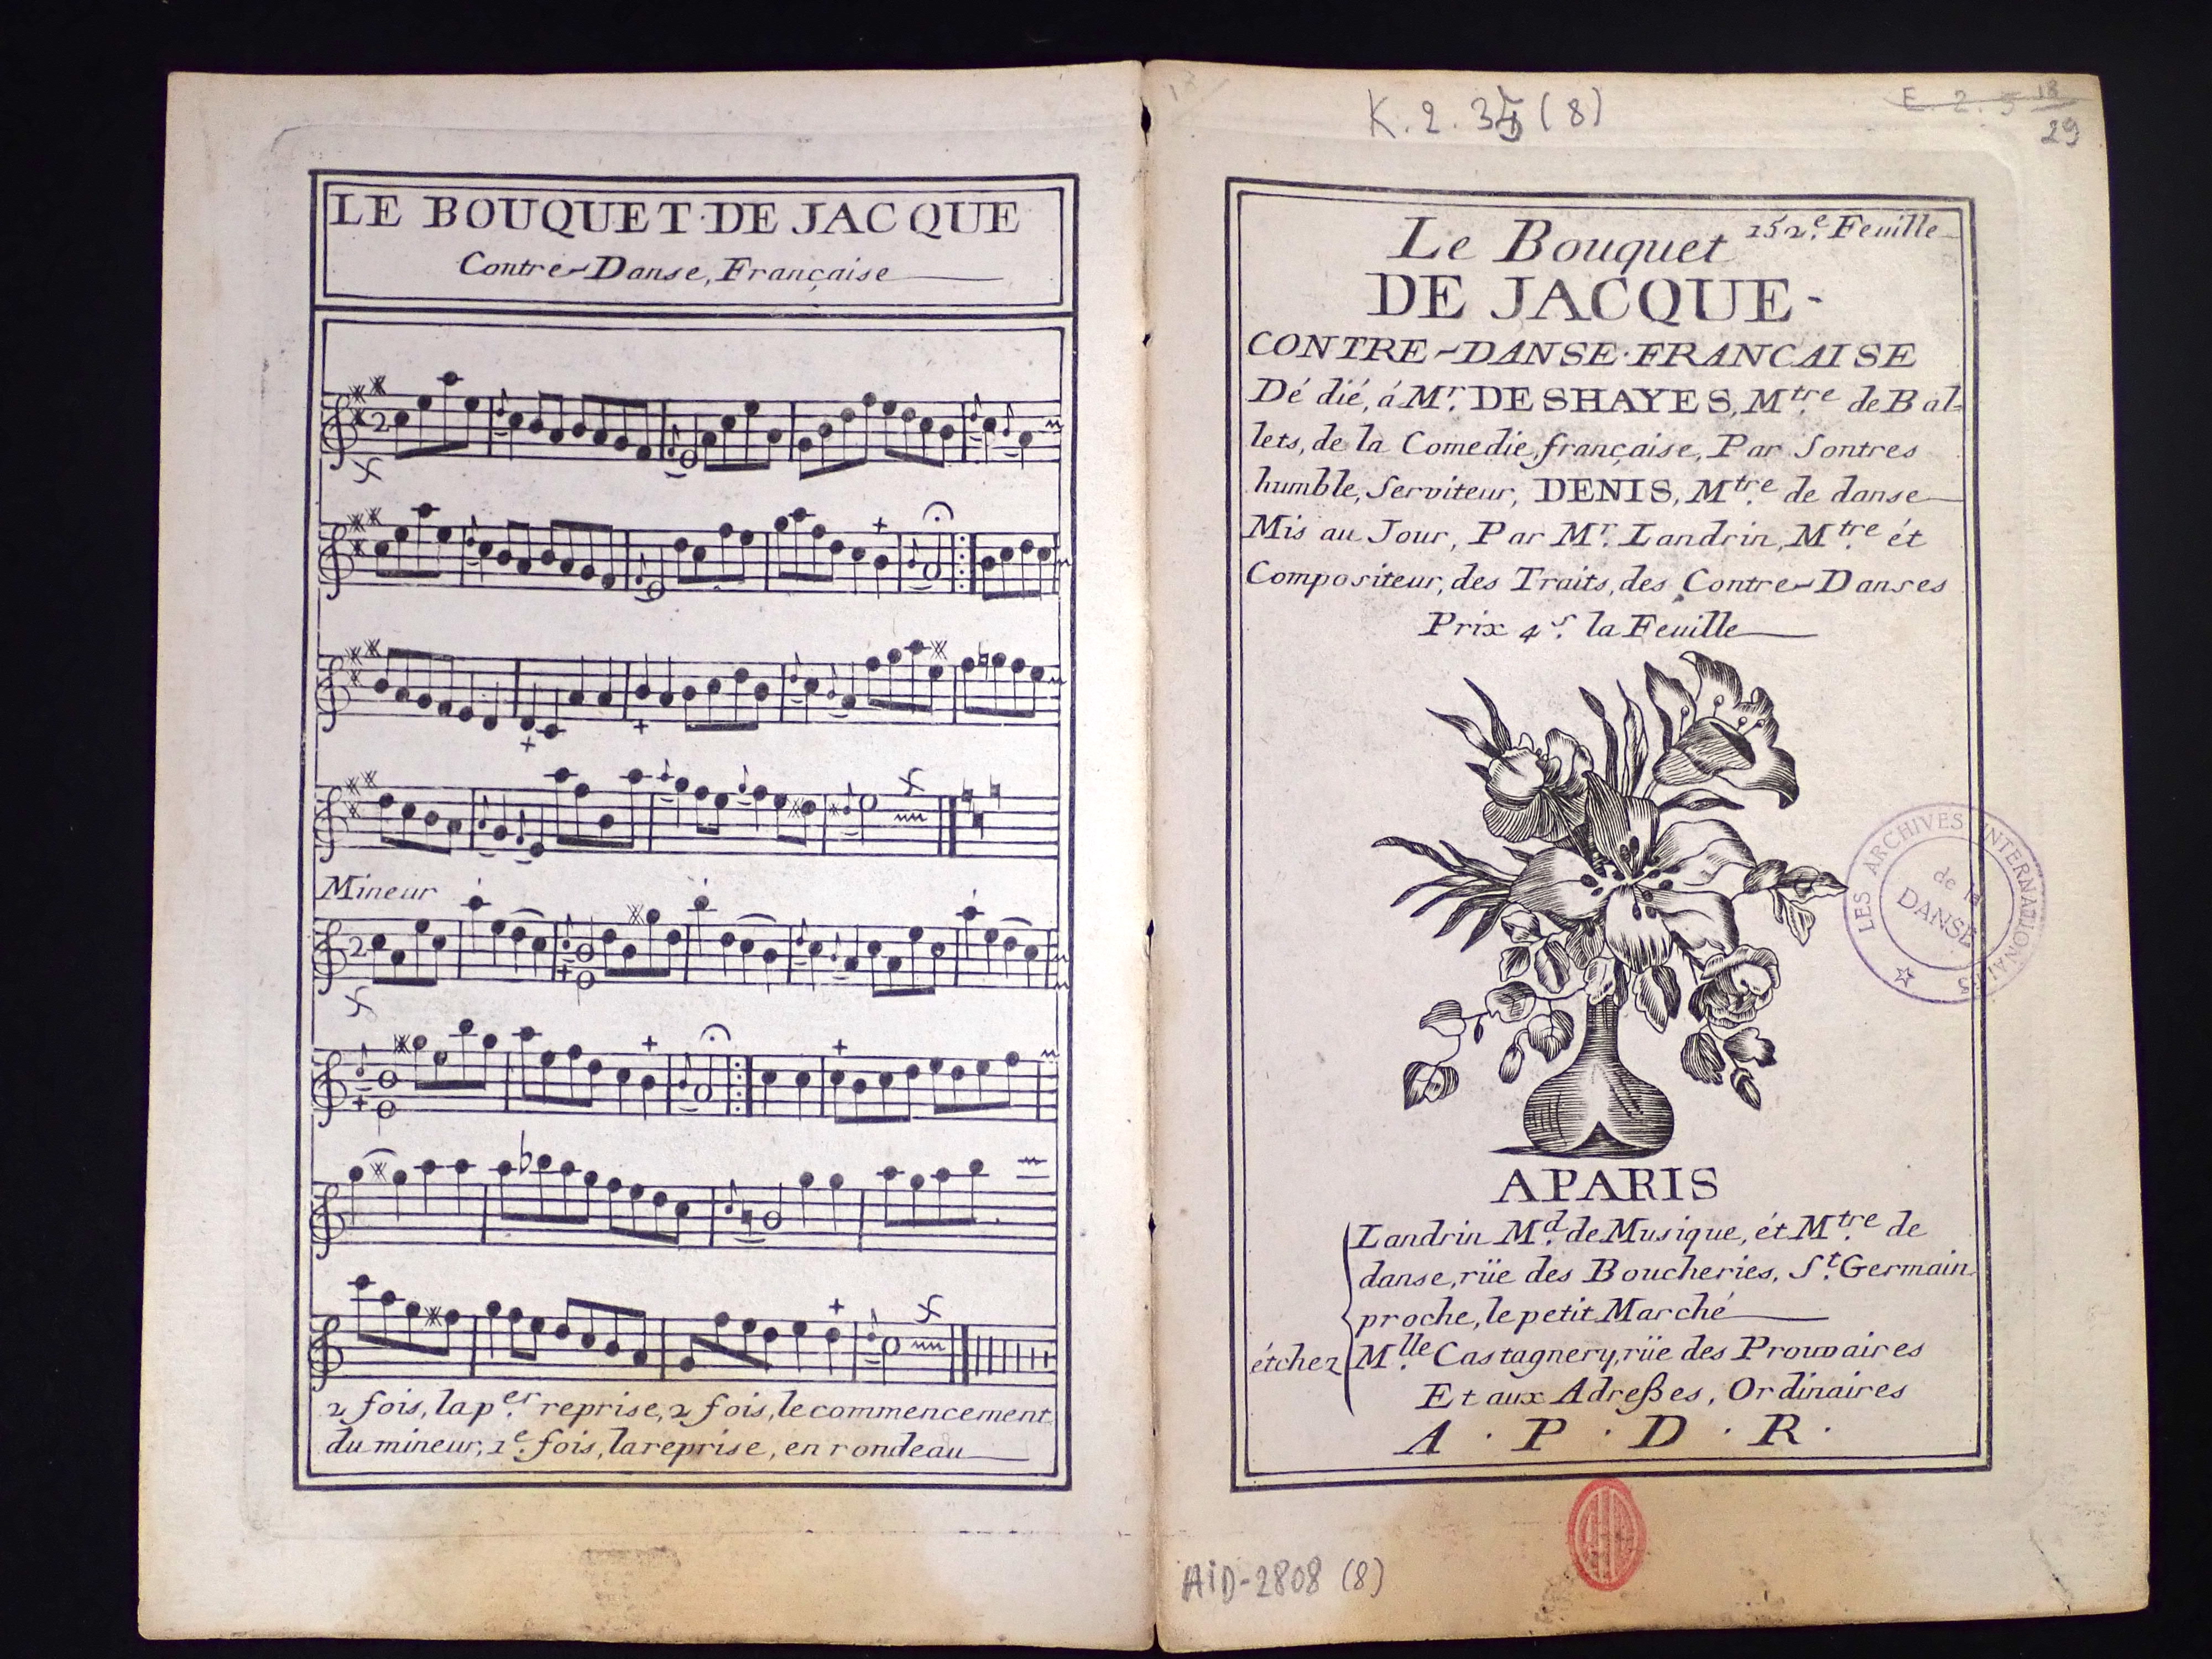 LE BOUQUET DE JACQUE
Contre-Danse, Française
2
Mineur
2
2 fois, la p.er reprise, 2 fois, le commencement
du mineur, 1.e fois, la reprise, en rondeau
K. 2. 35 (8)
E. 2. 5 18
29
152.e Feuille
Le Bouquet
DE JACQUE-
CONTRE-DANSE·FRANCAISE
Dé dié, á Mr. DESHAYES, Mtre de Bal-
lets, de la Comedie, française, Par Sontres
humble, Serviteur, DENIS, Mtre de danse
Mis au Jour, Par Mr. Landrin, Mtre ét
Compositeur, des Traits, des Contre-Danses
Prix 4s. la Feuille
LES ARCHIVES INTERNATIONALES
de la
DANSE
APARIS
Landrin Md. de Musique, ét Mtre de
danse, rüe des Boucheries, St. Germain
proche, le petit Marché
étchez Mlle Castagnery, rüe des Prouvaires
Et aux Adreßes, Ordinaires
A · P · D · R ·
AiD-2808 (8)